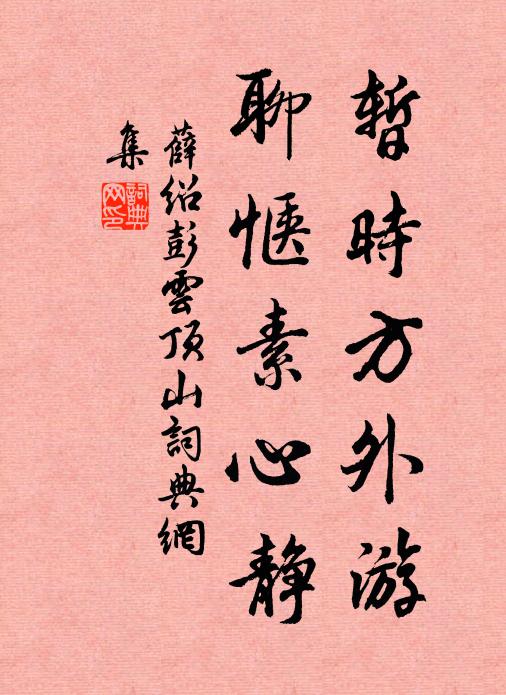 暫時方外游
聊惬素心静
薛绍彭雲顶山詞典網
集
詞典
网印